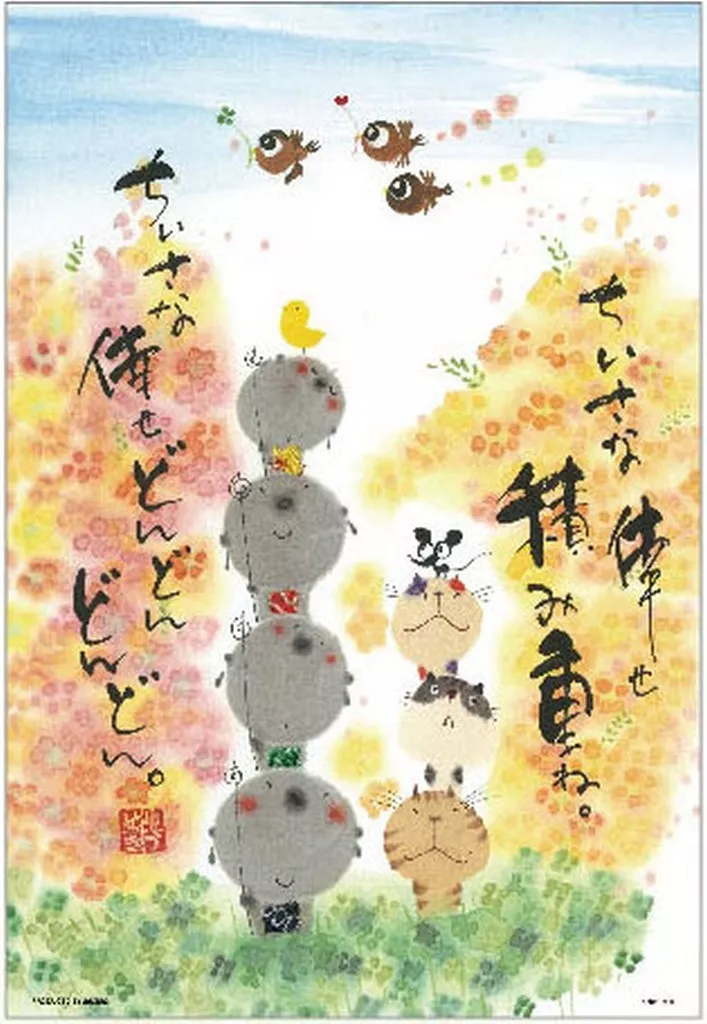 ちいさな
倖せ
積み
重ね。
ちいさな
倖せ
どんどん
どんどん。